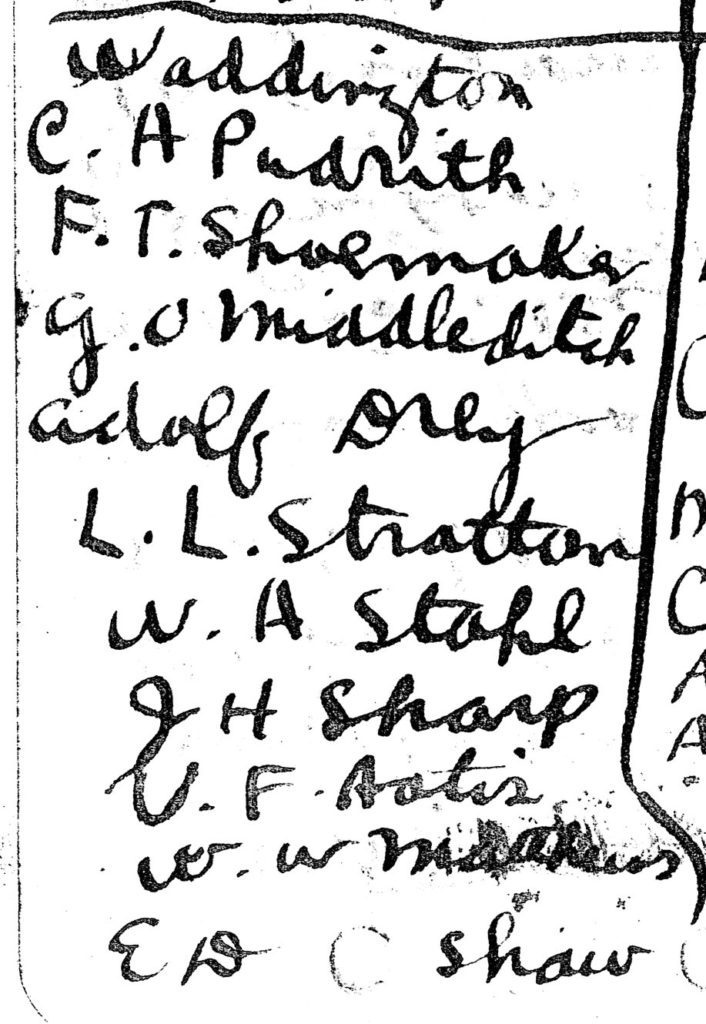 Waddington
C. A Pudrith
F. T. Shoemaker
G. O Middleditch
Adolf Drey
L. L. Stratton
W. A Stahl
J H Sharp
V. F.
W. W Matthews
E D C Shaw